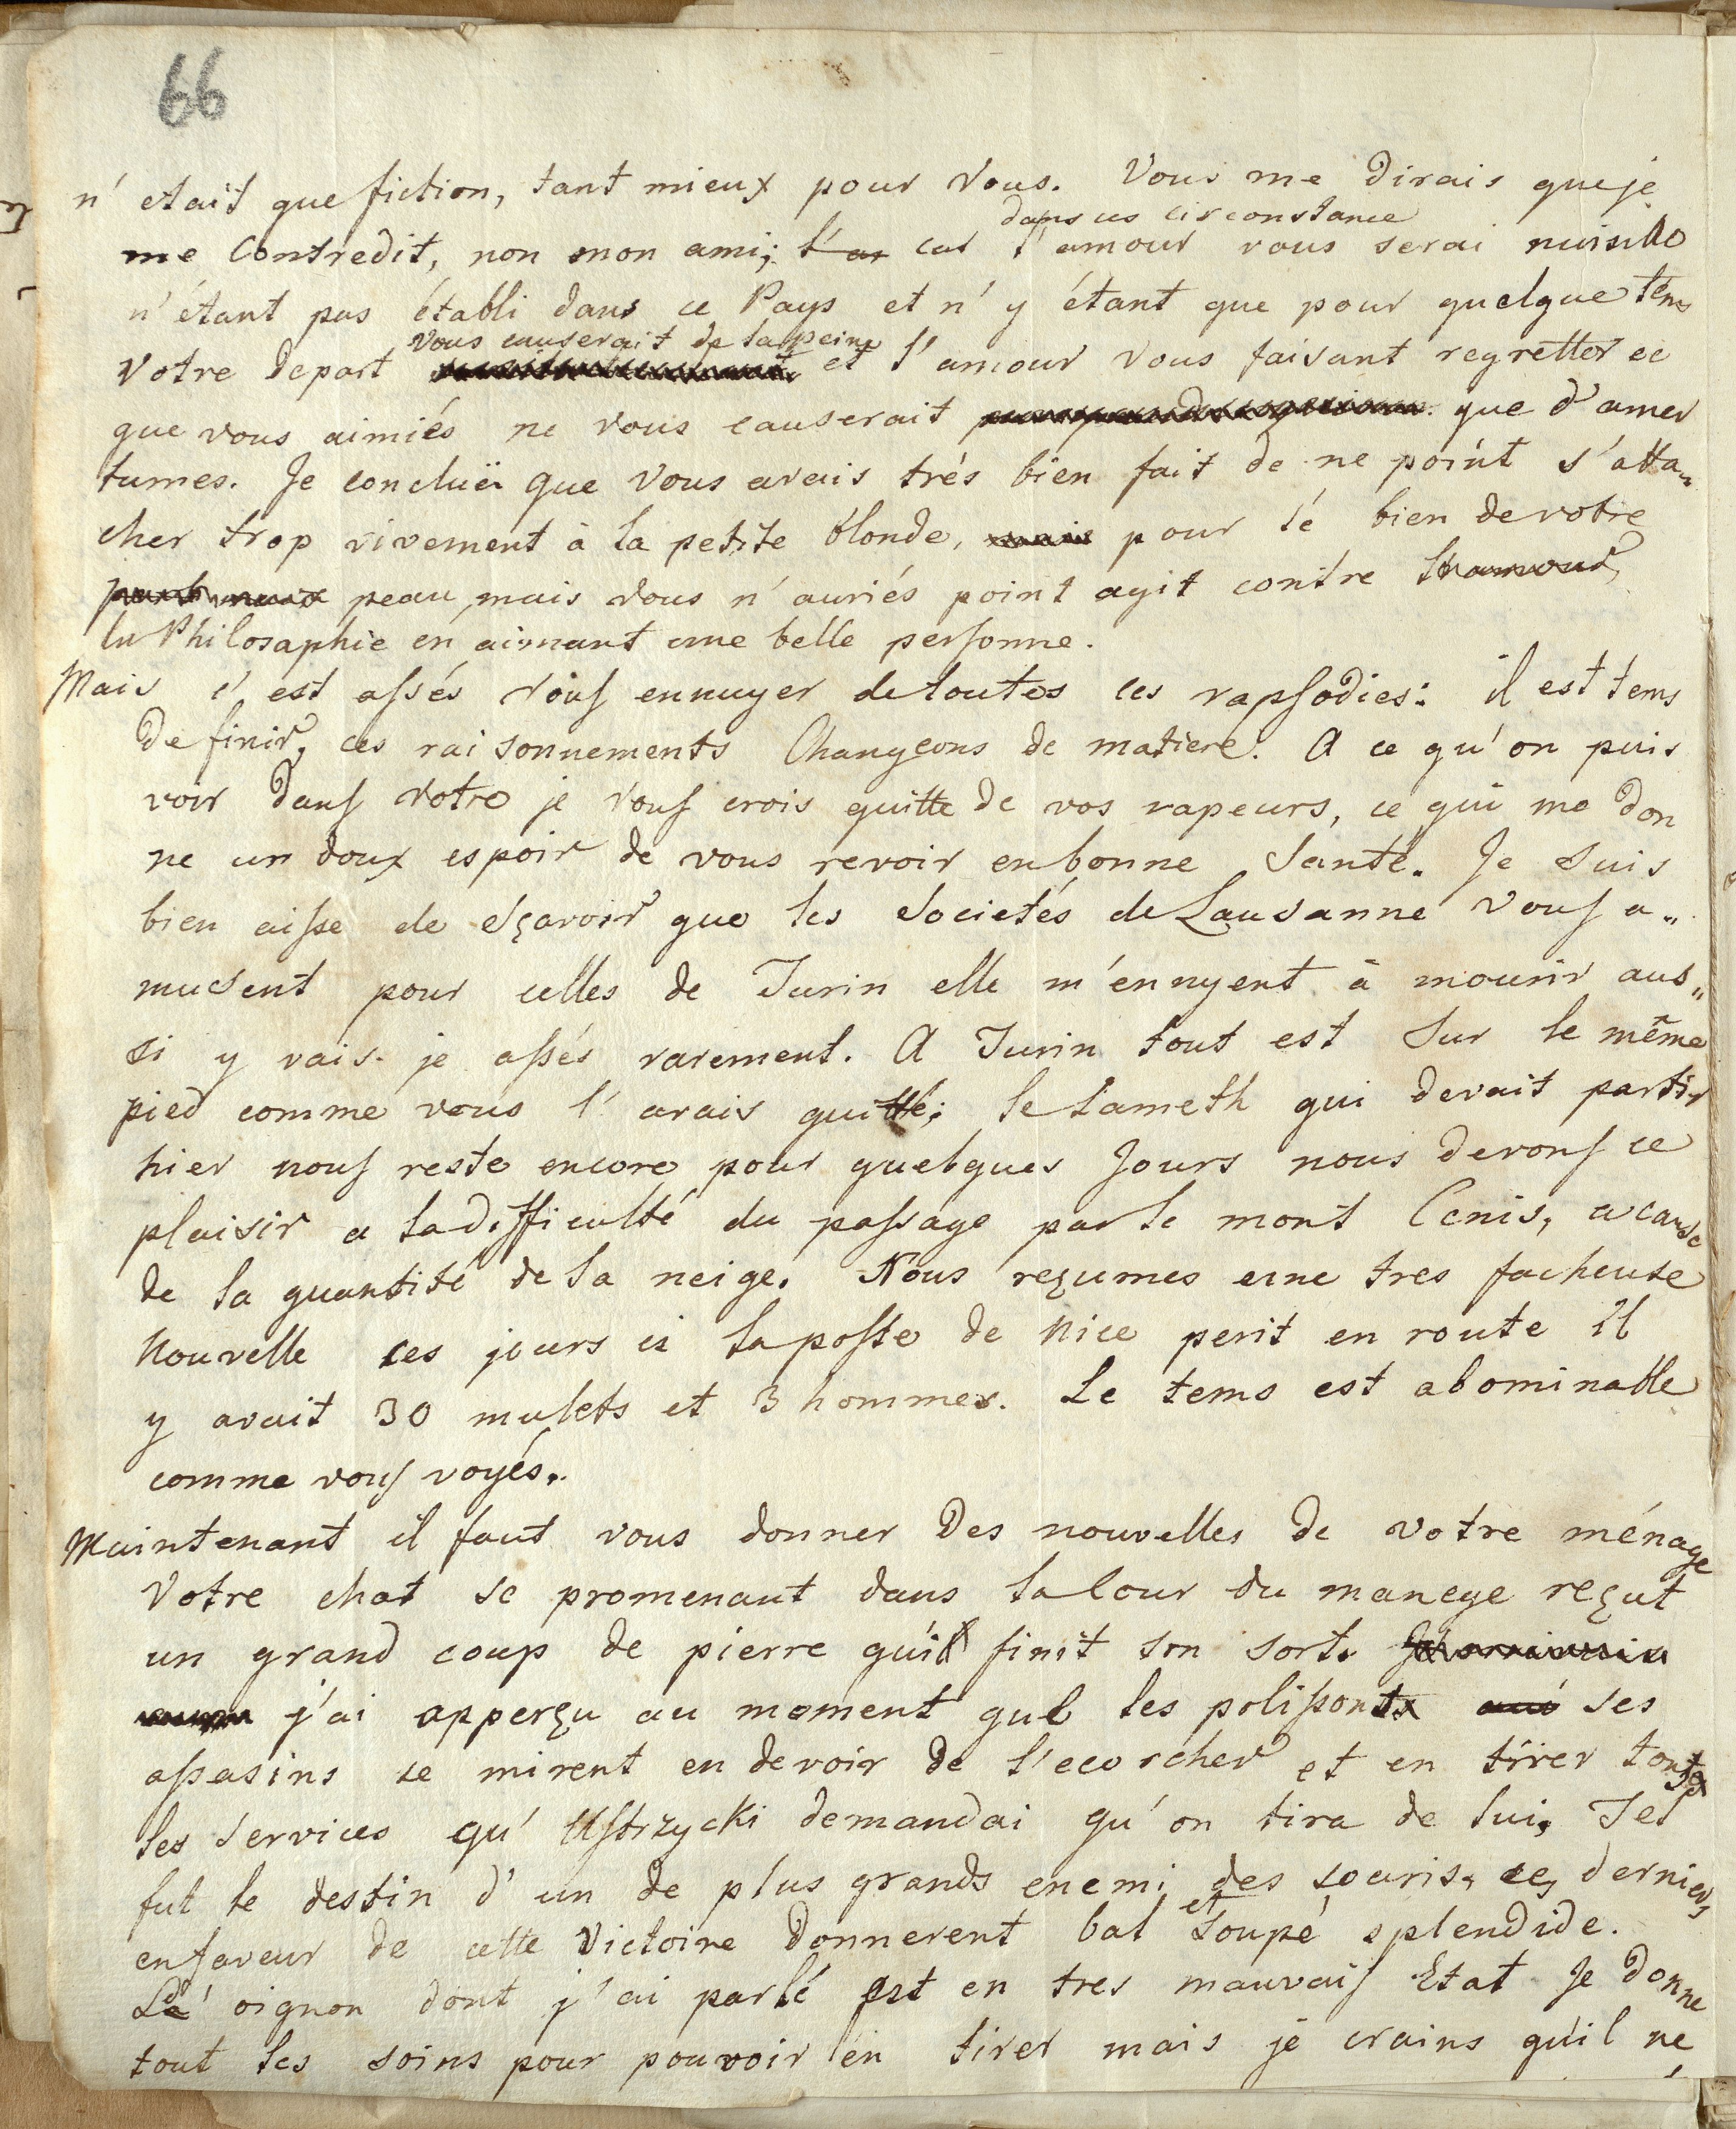 66
n' etait que fiction, tant mieux pour Vous. Vous me Dirais que je
dans ces circonstance
me Contredit, non mon ami; l'a car l'amour vous serai nuisible
n'étant pas établi dans ce Pays et n'y étant que pour quelque tems
Vous causerait de la peine
Votre Depart et l'amour Vous faisant regretter ce
que vous aimiés ne vous causerait que d'amer
tumes. Je concluë que Vous avais trés bien fait de ne point s'atta„
cher trop vivement à la petite blonde, mais pour lé bien de votre
peau, mais vous n'auriés point agit contre l'amour
la Philosaphie en aimant une belle personne.
Mais c'est assés vous ennuyer de toutes ces rapsodies: il est tems
De finir, ces raisonnements Changeons de matiere. A ce qu'on puis
voir Dans Votre je vous crois quitte de vos vapeurs, ce qui me Don
ne un doux espoir de vous revoir en bonne Santé. Je Suis
bien aisse de sçavoir que les Societés de Lausanne Vous a„
musent pour celles de Turin elle m'ennyent à mourir aus„
si y vais-je assés rarement. A Turin tout est Sur le même
pied comme vous l'avais quitté; le Lameth qui Devait partir
hier nous reste encore pour quelques Jours nous Devons ce
plaisir a la Difficulté du passage par le mont Cenis, a cause
de la quantité de la neige. Nous reçumes une tres facheuse
Nouvelle ces jours ci la poste de Nice perit en route il
y avait 30 mulets et 3 hommes. Le tems est abominable
comme vous voyés.
Maintenant il faut vous donner Des nouvelles de votre ménage
Votre chat se promenant dans la Cour du manege reçut
un grand coup de pierre qui finit son sort.
j'ai apperçu au moment que les polissons ses
assasins se mirent en devoir de l'ecorcher et en tirer tout
les Services qu' Ustrzycki demandai qu'on tira de lui, Tel
fut le destin d'un de plus grands enemi des souris, ces derniers
et
en faveur de cette Victoire Donnerent bal Soupé splendide.
L'oignon dont j'ai parlé est en tres mauvais Etat Je Donne
tout les soins pour pouvoir en tirer mais je crains qu'il ne